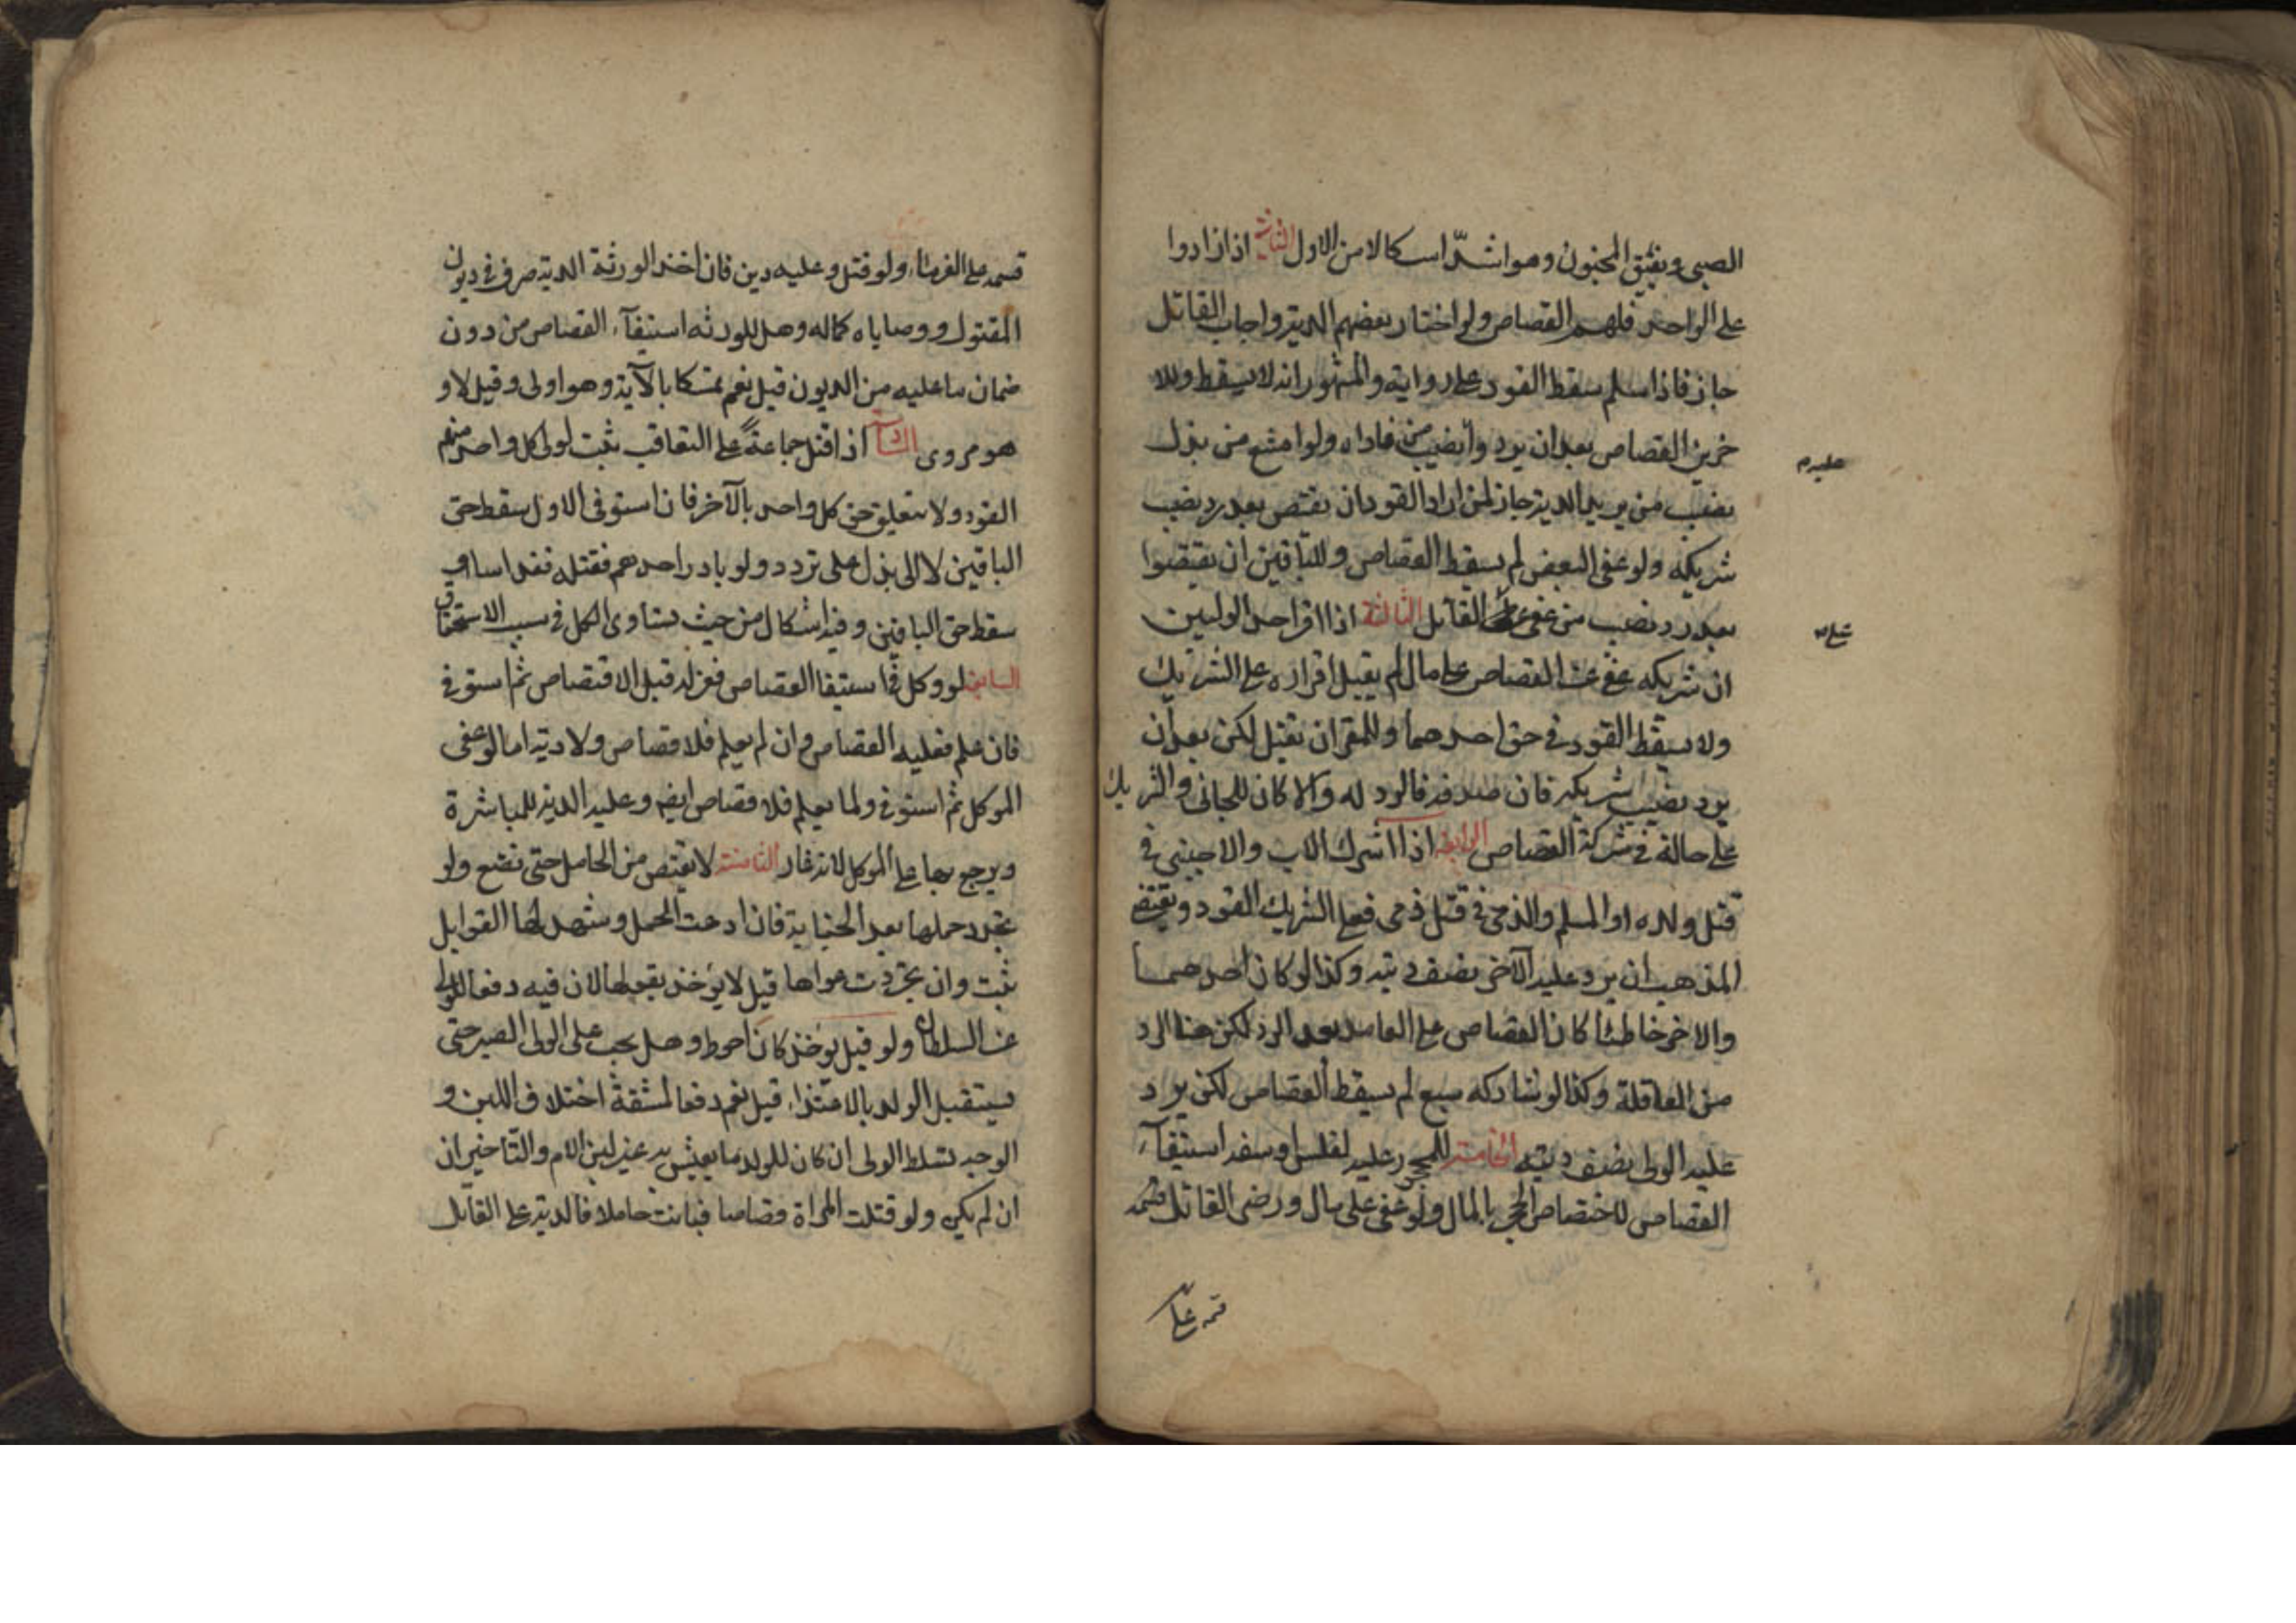 الصبى ويفيق المجنون وهو اشدّ اسكالا من الاول الثانية اذا زادوا
على الواحد فلهم القصاص ولو اختار بعضهم الدية واجاب القاتل
جاز فاذا سلم سقط القود على رواية والمشهور انه لا يسقط وللا
خرين القصاص بعد ان يردوا نصيب من فاداه ولو امتنع من بذل
نصيب من يريد الدية جاز لمن اراد القود ان يقتص بعد رد نصيب
شريكه ولو عفى البعض لم يسقط القصاص وللباقين ان يقتصوا
بعد رد نصيب من عفى على القاتل الثالثة اذا اقر احد الوليين
ان شريكه عفى عن القصاص على مال لم يقبل اقراره على الشريك
ولا يسقط القود فى حق احدهما وللمقر ان يقتل لكن بعد ان
يرد نصيب شريكه فان صدقه فالرد له والا كان للجانى والشريك
على حاله فى شركة القصاص الرابعة اذا اشترك الاب والاجنبى فى
قتل ولده او المسلم والذمى فى قتل ذمى فعلى الشريك القود ويقتضى
المذهب ان يرد عليه الآخر نصف ديته وكذا لو كان احدهما
والاخر خاطئا كان القصاص على العامد بعد الرد لكن هنا الرد
من العاقلة وكذا لو شاركه سبع لم يسقط القصاص لكن يرد
عليه الولى نصف ديته الخامسة للمحجور عليه لفلس او سفه استيفآء
القصاص لاختصاص الحجر بالمال ولو عفى على مال ورضى القاتل قسمه
قسمه على
عليه م
قسمه على الغرماء ولو قتل وعليه دين فان اخذ الورثة الدية صرف فى ديون
المقتول ووصاياه كماله وهل للورثه استيفآء القصاص من دون
ضمان ما عليه من الديون قيل نعم تمسكا بالآية وهو اولى وقيل لا و
هو مروى السادسة اذا قتل جماعة على التعاقب ثبت لولى كل واحد منهم
القود ولا يتعلق حق كل واحد بالآخر فان استوفى الاول سقط حق
الباقين لا الى بذل على تردد ولو بادر احدهم فقتله فقد اسا و
سقط حق الباقين وفيه اشكال من حيث تساوى الكل فى سبب الاستحقاق
السابعة لو وكل فى استيفا القصاص فعزله قبل الاقتصاص ثم استوفى
فان علم فعليه القصاص وان لم يعلم فلا قصاص ولا دية اما لو عفى
الموكل ثم استوفى ولما يعلم فلا قصاص ايضا وعليه الدية للمباشرة
ويرجع بها على الموكل لانه غار الثامنة لا يقتص من الحامل حتى تضع ولو
تجدد حملها بعد الجناية فان ادعت الحمل وشهد لها القوابل
ثبت وان تجردت دعواها قيل لا يؤخذ بقولها لان فيه دفعا للولى
عن السلطان ولو قيل يوخذ كان احوط وهل يجب على الولى الصبر حتى
يستقبل الولد بالاغتذاء قيل نعم دفعا لمشقة اختلاف اللبن و
الوجه تسلط الولى ان كان للولد ما يعيش به غير لبن الام والتاخير ان
ان لم يكن ولو قتلت المراة قصاصا فبانت حاملا فالدية على القاتل